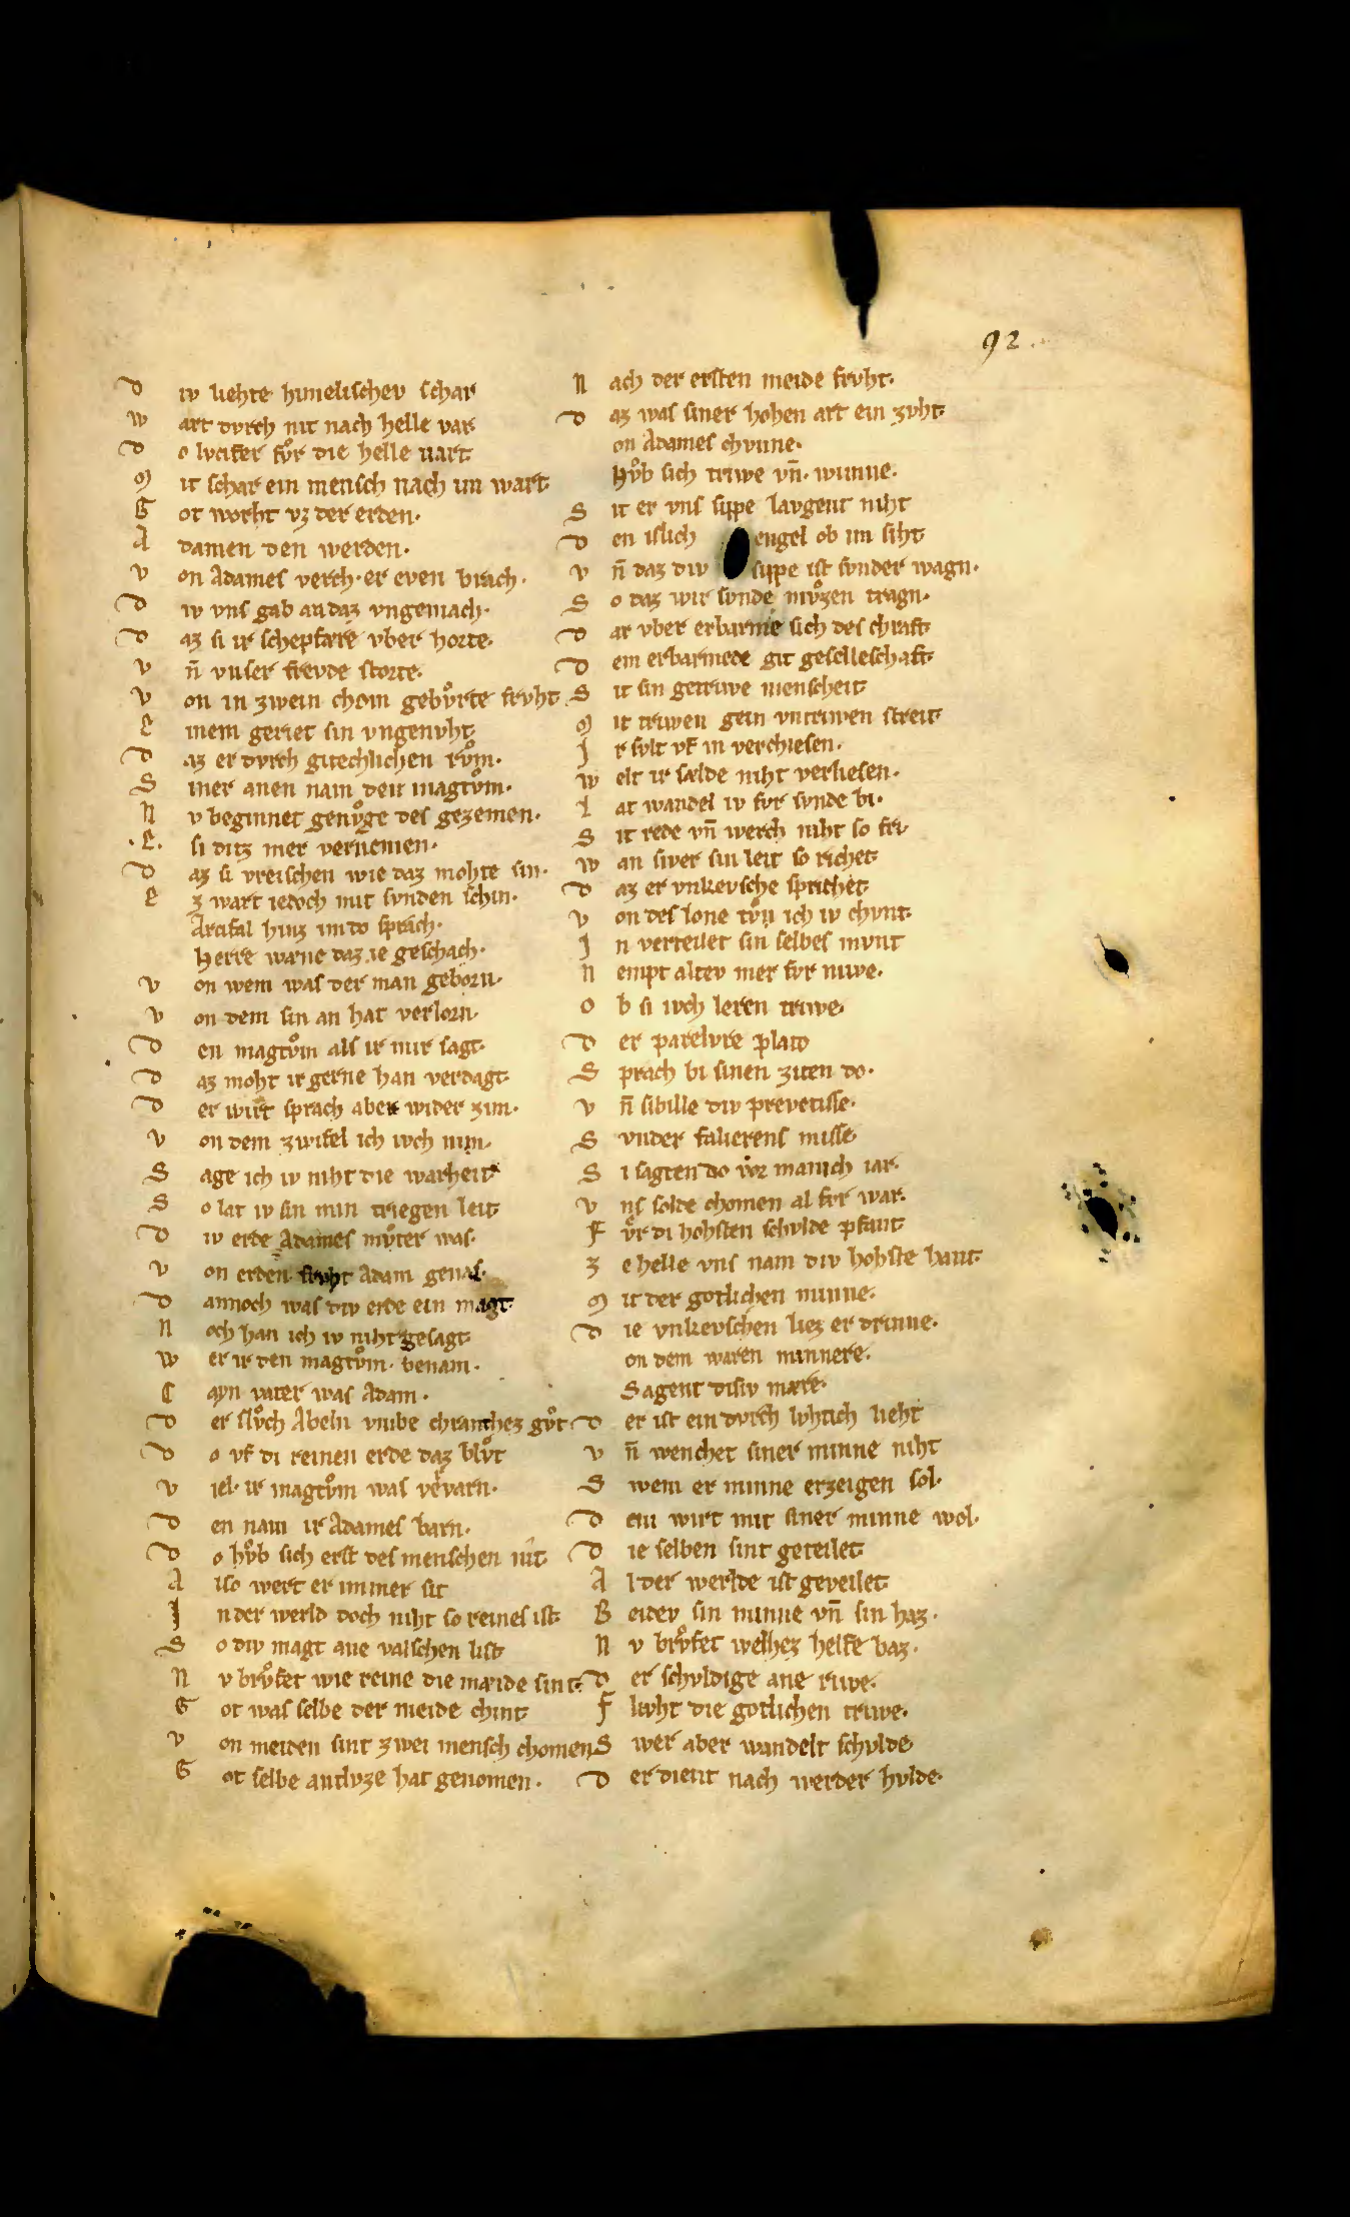 92.
D iv liehte himelischev schar
W art dvrch nit nach helle var
D o lvcifer fvͦr die helle uart
M it schar ein mensch nach im wart
G ot worht vz der erden.
A damen den werden.
V on Adames verch. er even brach.
D iv vns gab an daz vngemach.
D az si ir schepfære vber horte.
V n̄ vnser frevde storte.
V on in zwein chom gebvͦrte frvht.
E inem geriet sin vngenvht
D az er dvrch gitechlichen rvͦm.
S iner anen nam den magtvͦm.
N v beginnet genvͦge des gezemen.
.E. si ditz mer vernemen.
D az si vreischen wie daz mohte sin.
E z wart iedoch mit svnden schin.
Arcifal hinz im do sprach.
Herre wæne daz ie geschach.
V on wem was der man geborn.
V on dem sin an hat verlorn.
D en magtvͦm als ir mir sagt.
D az moht ir gerne han verdagt.
D er wirt sprach aber wider zim.
V on dem zwifel ich ivch nim.
S age ich iv niht die warheit
S o lat iv sin min triegen leit
D iv erde Adames mvͦter was.
V on erden frvht Adam genas.
D annoch was div erde ein magt.
N och han ich iv niht gesagt
W er ir den magtvͦm. benam.
C ayn vater was Adam.
D er slvͦch Abeln vmbe chranchez gvͦt
D o vf di reinen erde daz blvͦt
V iel. ir magtvͦm was vervarn.
D en nam ir Adames barn.
D o hvͦb sich erst des menschen nit
A lso wert er immer sit
I n der werld doch niht so reines ist
S o div magt ane valschen list
N v brvͦfet wie reine die mæide sint.
G ot was selbe der meide chint
V on meiden sint zwei mensch chomen
G ot selbe antlvze hat genomen.
N ach der ersten meide frvht.
D az was siner hohen art ein zvht
on Adames chvnne.
Hvͦb sich triwe vn̄. wunne.
S it er vns sippe lavgent niht
D en islich engel ob im siht
V n̄ daz div sippe ist svnder wagn.
S o daz wir svnde mvͦzen tragn.
D ar vber erbarme sich des chraft
D em erbarmede git geselleschaft
S it sin getriwe menscheit
M it triwen gein vntriwen streit
I r svlt vf in verchiesen.
W elt ir sælde niht verliesen.
L at wandel iv fvr svnde bi.
S it rede vn̄ werch niht so fri
W an siver sin leit so richet
D az er vnkevsche sprichet
V on des lone tvͦn ich iv chvnt
I n verteilet sin selbes mvnt
N empt altev mer fvr niwe.
O b si ivch leren triwe
D er parelvre plato
S prach bi sinen ziten do.
V n̄ sibille div prevetisse.
S vnder falierens misse
S i sagten do vor manich iar.
V ns solde chomen al fvr war.
F vͦr di hohsten schvlde pfant
Z e helle vns nam div hohste hant.
M it der gotlichen minne.
D ie vnkevschen liez er drinne.
on dem waren minnere.
Sagent disiv mære.
D er ist ein dvrch lvhtich lieht
V n̄ wenchet siner minne niht
S wem er minne erzeigen sol.
D em wirt mit siner minne wol.
D ie selben sint geteilet
A l der werlde ist geveilet
B eidev sin minne vn̄ sin haz.
N v brvͦfet welhez helfe baz.
D er schvldige ane riwe.
F levht die gotlichen triwe.
S wer aber wandelt schvlde
D er dient nach werder hvlde.